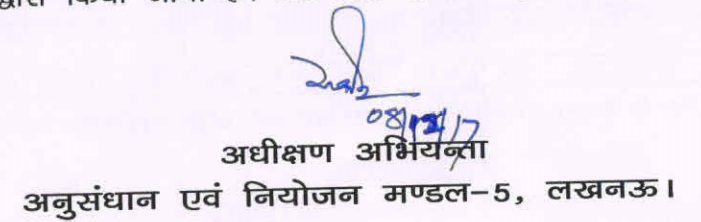 द्वारा किया जाना
08/12/17
अधीक्षण अभियन्ता
अनुसंधान एवं नियोजन मण्डल-5, लखनऊ।